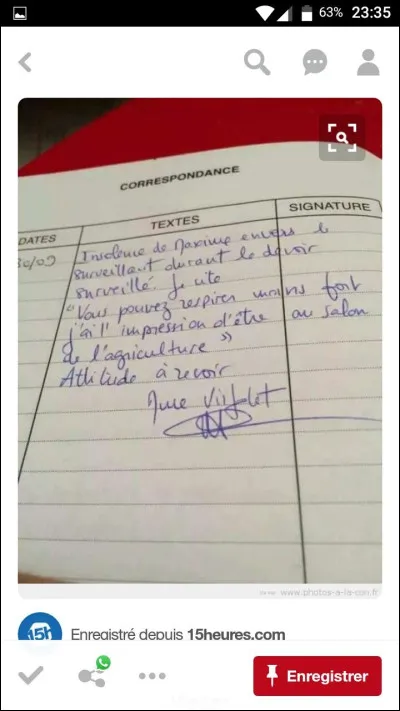 63% 23:35
CORRESPONDANCE
DATES TEXTES SIGNATURE
30/09 Insolence de Maxime envers le
surveillant durant le devoir
surveillé. Je cite
"Vous pouvez respirer moins fort
j'ai l'impression d'être au salon
de l'agriculture"
Attitude à revoir
Mme
www.photos-a-la-con.fr
15h Enregistré depuis 15heures.com
Enregistrer